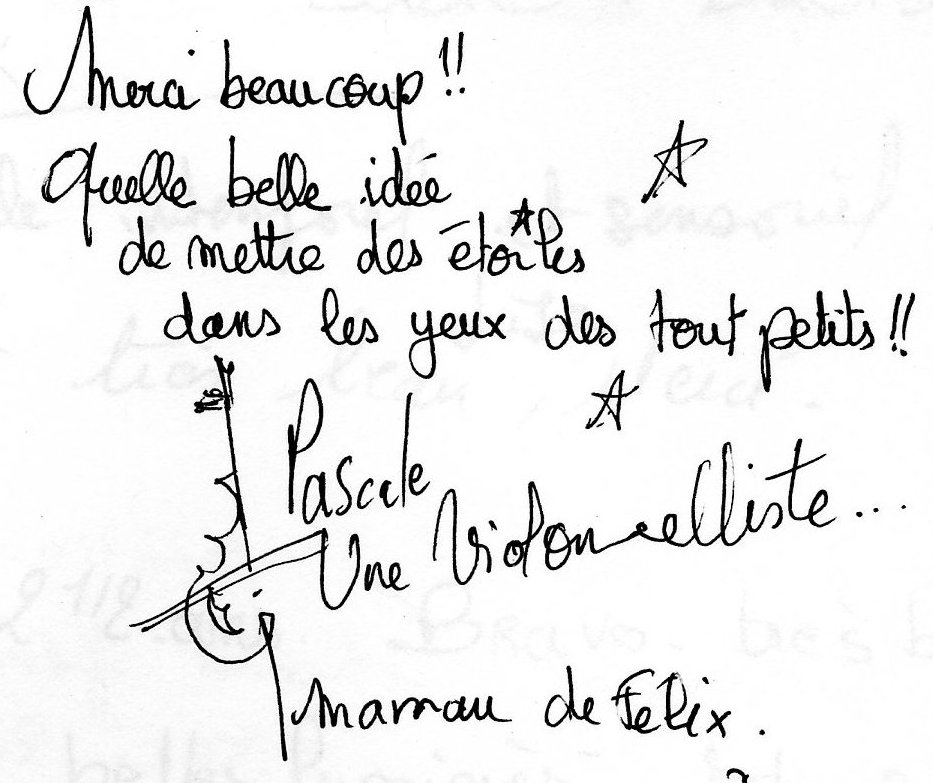 Merci beaucoup !!
Quelle belle idée
de mettre des étoiles
dans les yeux des tout petits !!
Pascale
Une Violoncelliste...
maman de Félix.